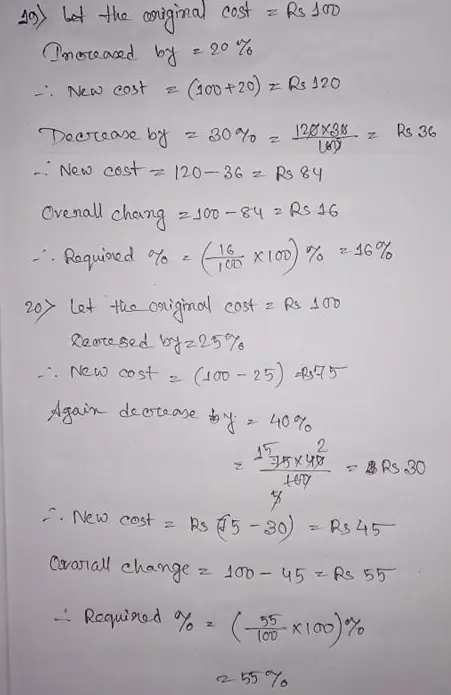 19> Let the original cost = Rs 100
Increased by = 20%
∴ New cost = (100+20) = Rs 120
Decrease by = 30% = 120×30/100 = Rs 36
∴ New cost = 120-36 = Rs 84
Overall chang = 100-84 = Rs 16
∴ Required % = (16/100 ×100) % = 16%
20> Let the original cost = Rs 100
Decreased by = 25%
∴ New cost = (100-25) = Rs 75
Again decrease by = 40%
15 2
= 75×40/100 = Rs 30
5
∴ New cost = Rs (75-30) = Rs 45
Overall change = 100-45 = Rs 55
∴ Required % = (55/100 ×100)%
= 55%